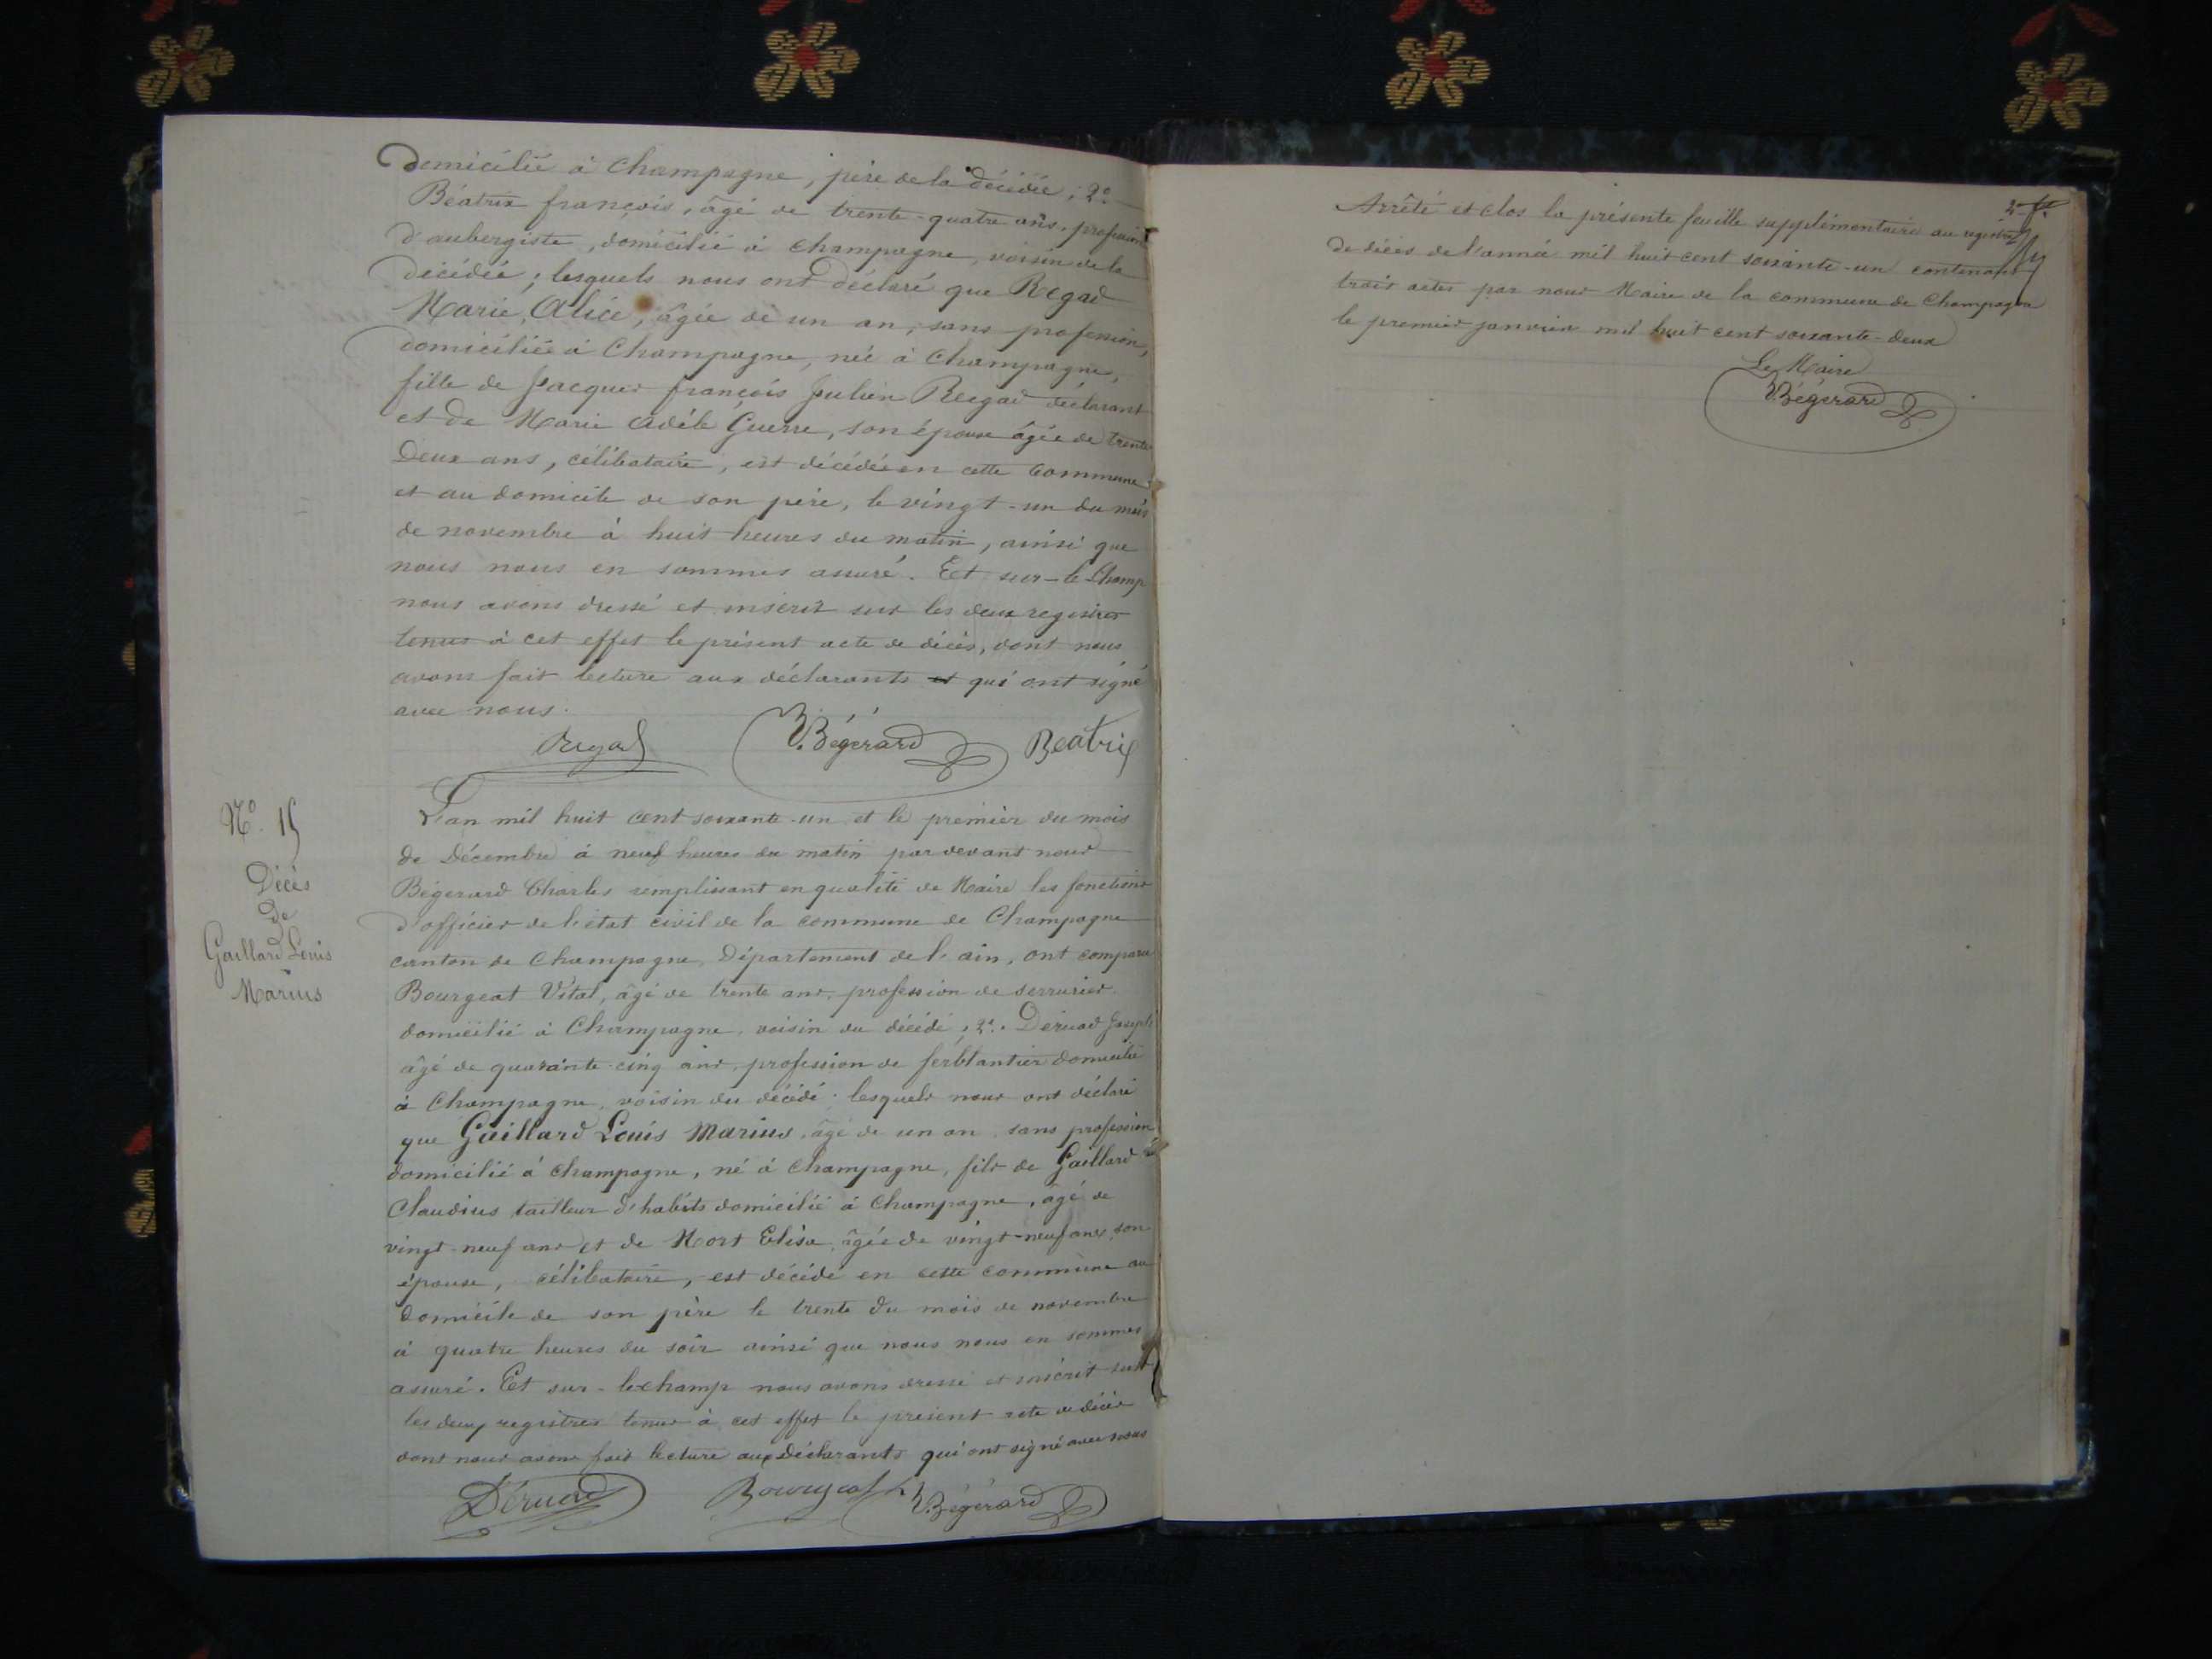 Domicilié à Champagne, père de la décédée, 2º
Béatrix françois, âgé de trente-quatre ans, profession
d'aubergiste, domicilié à Champagne, voisin de la
décédée; lesquels nous ont déclaré que Regad
Marie, Alice, âgée de un an, sans profession,
domiciliée à Champagne, née à Champagne,
fille de Jacques françois Julien Regad déclarant
et de Marie Adèle Guerre, son épouse âgée de trente
Deux ans, célibataire, est décédée en cette commune
et au domicile de son père, le vingt-un du mois
de novembre à huit heures du matin, ainsi que
nous nous en sommes assuré. Et sur-le-Champ
nous avons dressé et inscrit sur les deux registres
tenus à cet effet le présent acte de décès, dont nous
avons fait lecture aux déclarants et qui ont signé
avec nous.
Regad Bégerard Beatrix
Nº. 15
Décès
De
Gaillard Louis
Marius
L'an mil huit cent soixante-un et le premier du mois
de Décembre à neuf heures du matin par devant nous
Bégerard Charles remplissant en qualité de Maire les fonctions
d'officier de l'état civil de la commune de Champagne
canton de Champagne, Département de l'ain, ont comparu
Bourgeat Vital, âgé de trente ans, profession de serrurier.
domicilié à Champagne, voisin du décédé, 2º. Déruad Joseph
âgé de quarante-cinq ans, profession de ferblantier domicilié
à Champagne, voisin du décédé; lesquels nous ont déclaré
que Gaillard Louis Marius, âgé de un an, sans profession
domicilié à Champagne, né à Champagne, fils de Gaillard
Claudius tailleur d'habits domicilié à Champagne, âgé de
vingt-neuf ans et de Mort Elisa, âgée de vingt-neuf ans, son
épouse, célibataire, est décédé en cette commune au
domicile de son père le trente du mois de novembre
à quatre heures du soir ainsi que nous nous en sommes
assuré. Et sur-le-champ nous avons dressé et inscrit sur
les deux registres tenus à cet effet le présent acte de décès
dont nous avons fait lecture aux Déclarants qui ont signé avec nous
Déruad Bourgeat Bégerard
Arrêté et clos la présente feuille supplémentaire au registre
de décès de l'année mil huit cent soixante-un contenant
trois actes par nous Maire de la commune de Champagne
le premier janvier mil huit cent soixante-deux
Le Maire
Bégerard